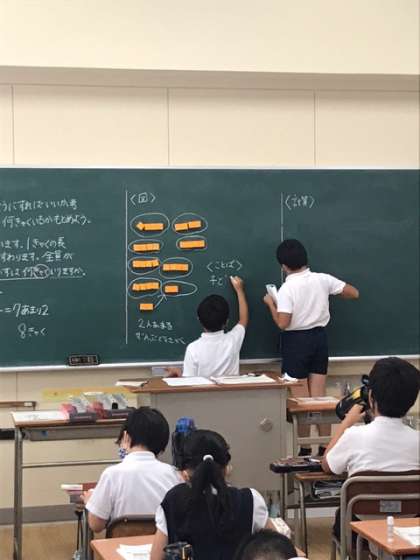 うにすればいいか考
何きゃくいるかもとめよう。
います。1きゃくの長
すわります。全員が
すは何きゃくいりますか。
=7あまり2
8きゃく
〈図〉
2人あまる
〈ことば〉
子ど
〈計算〉